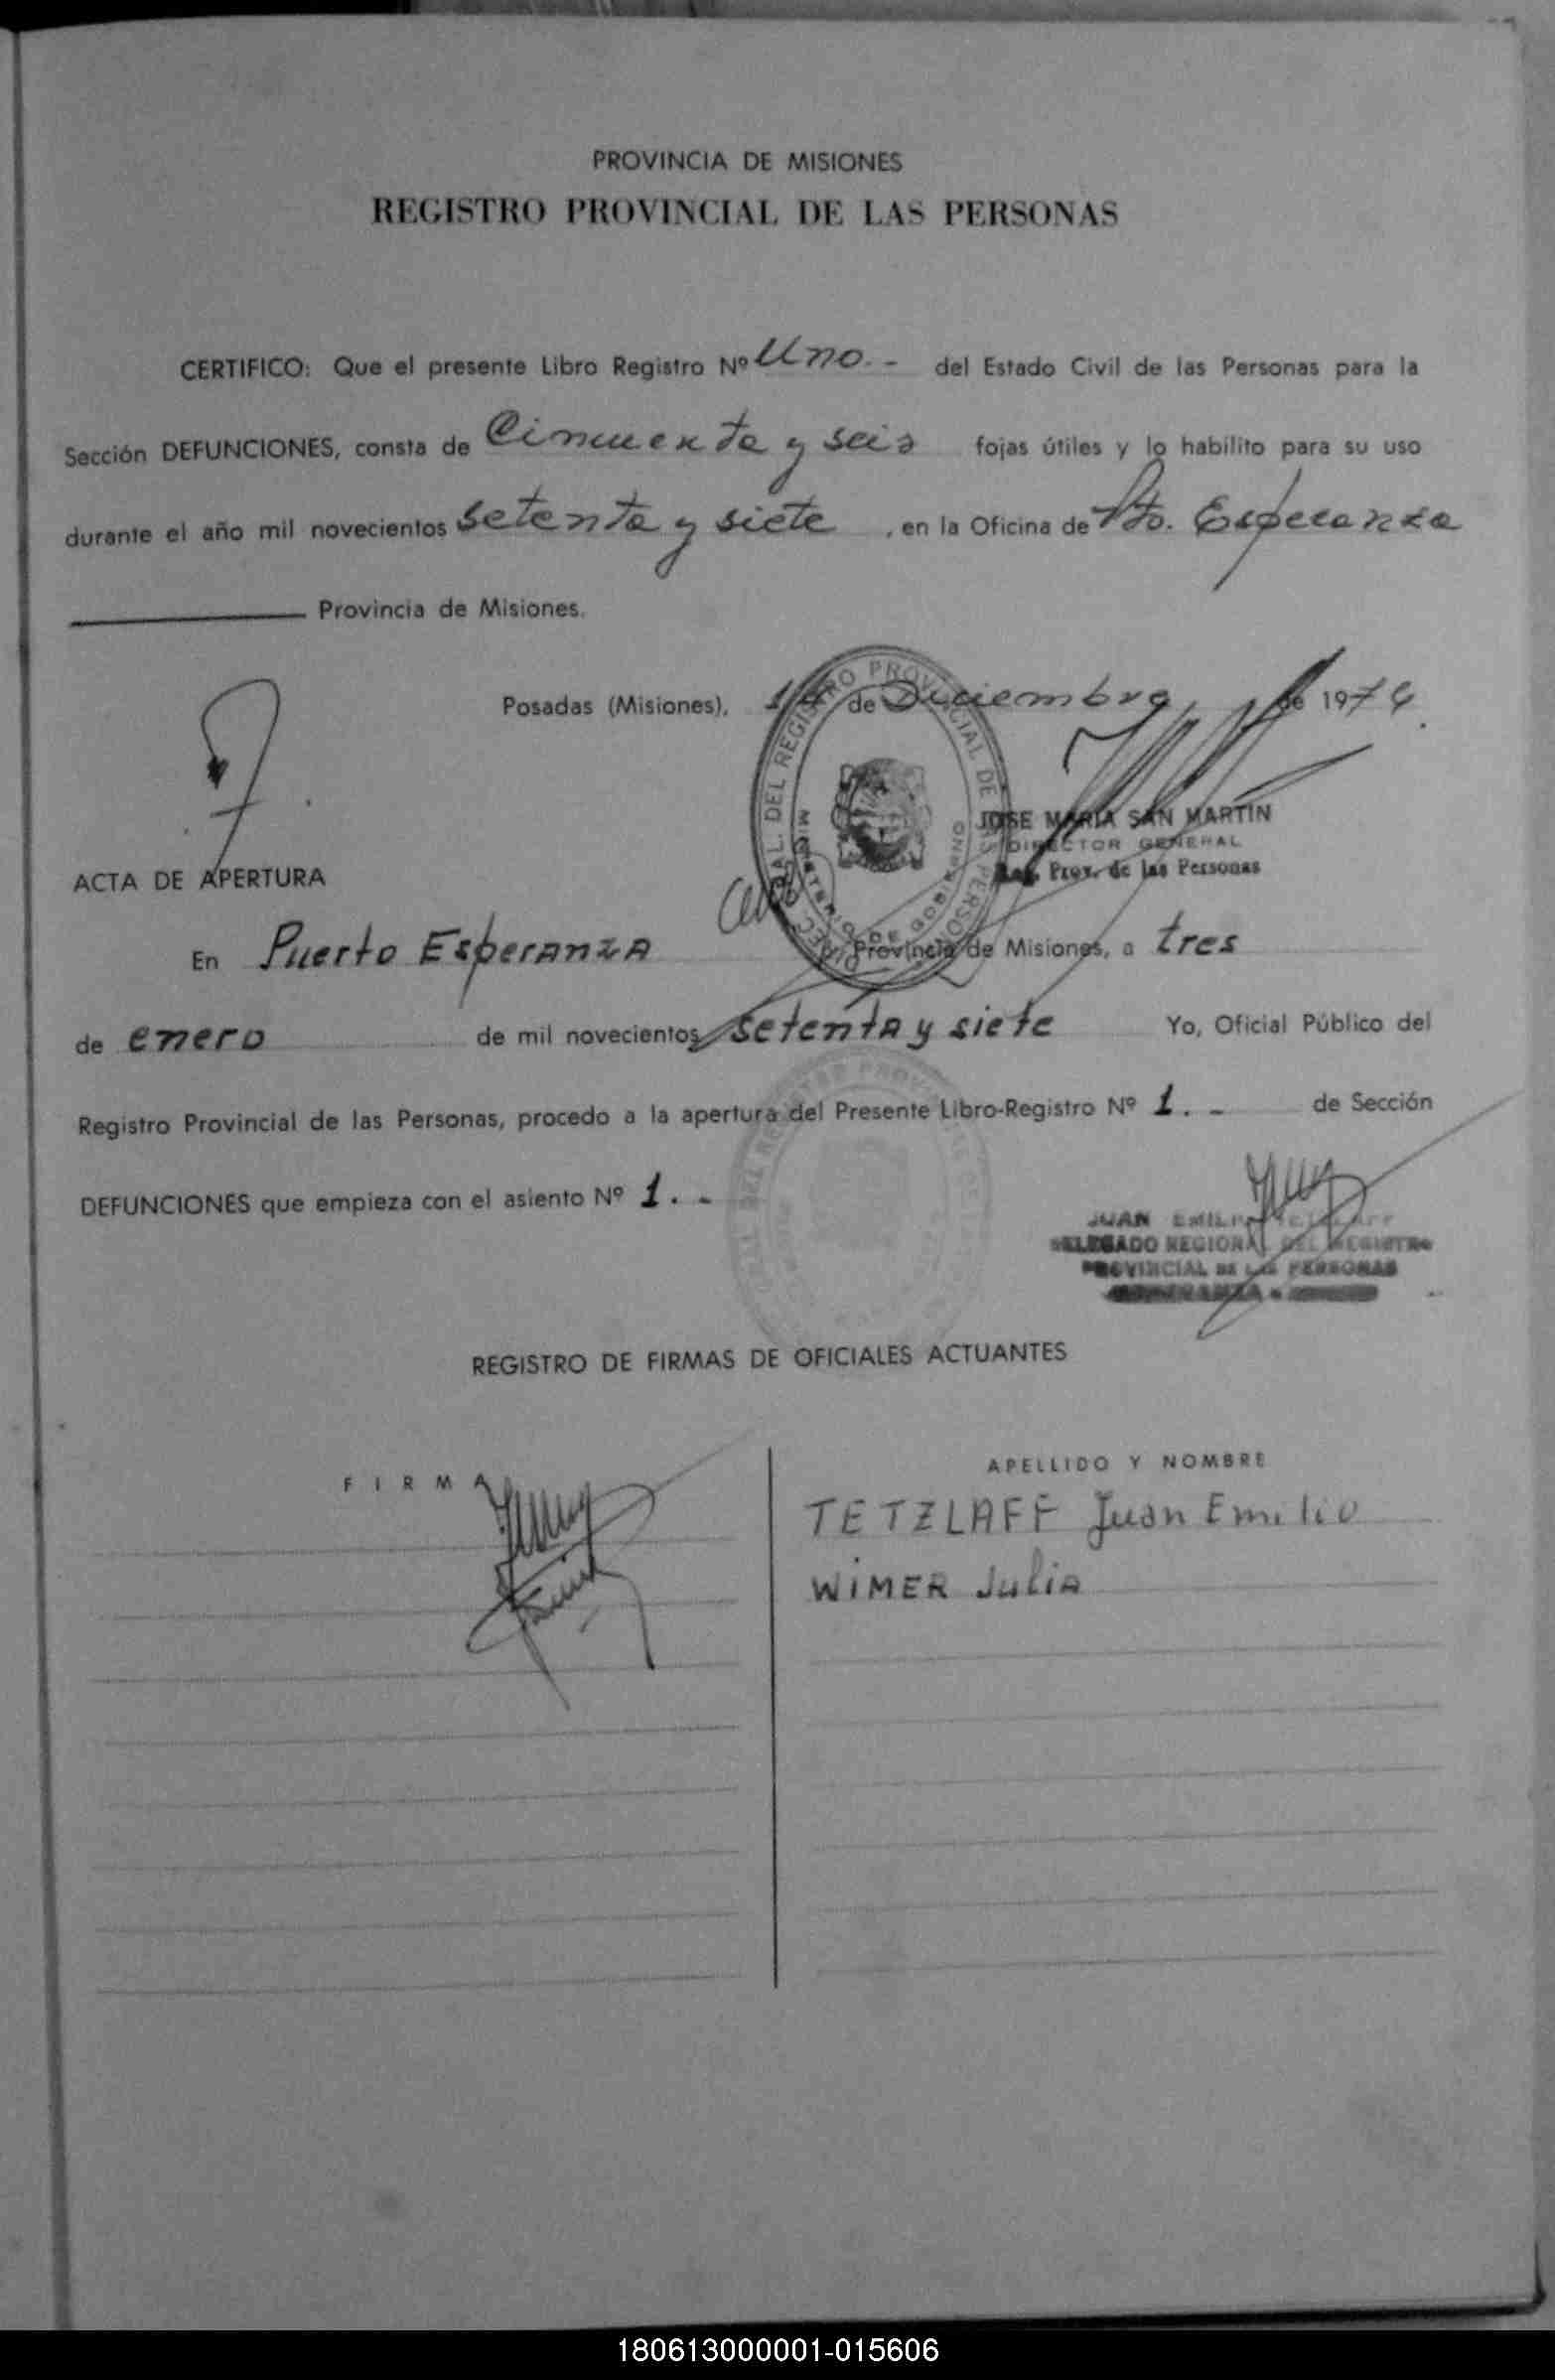 PROVINCIA DE MISIONES
REGISTRO PROVINCIAL DE LAS PERSONAS
CERTIFICO: Que el presente Libro Registro Nº Uno.- del Estado Civil de las Personas para la
Sección DEFUNCIONES, consta de Cincuenta y seis fojas útiles y lo habilito para su uso
durante el año mil novecientos setenta y siete, en la Oficina de Pto. Esperanza
Provincia de Misiones.
Posadas (Misiones), de Diciembre de 1976
JOSE MARIA SAN MARTIN
DIRECTOR GENERAL
Reg. Prov. de las Personas
ACTA DE APERTURA
En Puerto Esperanza Provincia de Misiones, a tres
de enero de mil novecientos setenta y siete Yo, Oficial Público del
Registro Provincial de las Personas, procedo a la apertura del Presente Libro-Registro Nº 1.- de Sección
DEFUNCIONES que empieza con el asiento Nº 1.-
JUAN EMILIO TETZLAFF
DELEGADO REGIONAL DEL REGISTRO
PROVINCIAL DE LAS PERSONAS
REGISTRO DE FIRMAS DE OFICIALES ACTUANTES
FIRMA
APELLIDO Y NOMBRE
TETZLAFF Juan Emilio
WIMER Julia
180613000001-015606